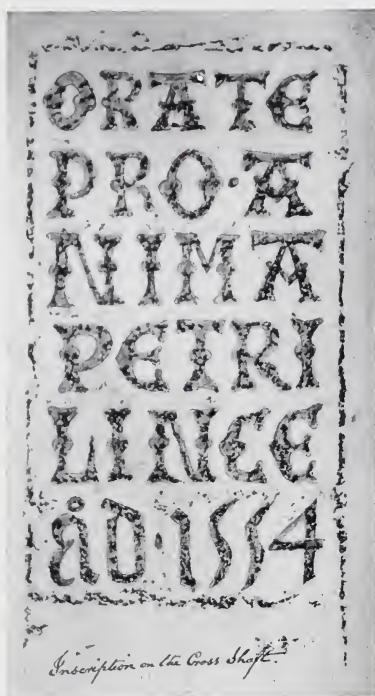 ORATE
PRO·A
NIMA
PETRI
LINCE
AD·1554
Inscription on the Cross Shaft.